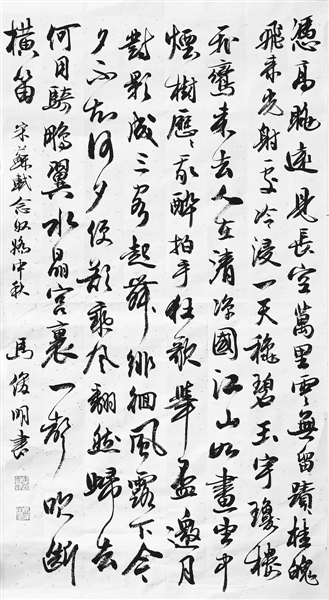 憑高眺遠見長空萬里雲無留蹟桂魄
飛來光射處冷浸一天穐碧玉宇瓊樓
乘鸞來去人在清涼國江山如畫望中
煙樹歷々我醉拍手狂歌舉盃邀月
對影成三客起舞徘徊風露下今
夕不知何夕便欲乘風翻然歸去
何用騎鵬翼水晶宮裏一聲吹斷
橫笛 宋蘇軾念奴嬌中秋 馬俊明書